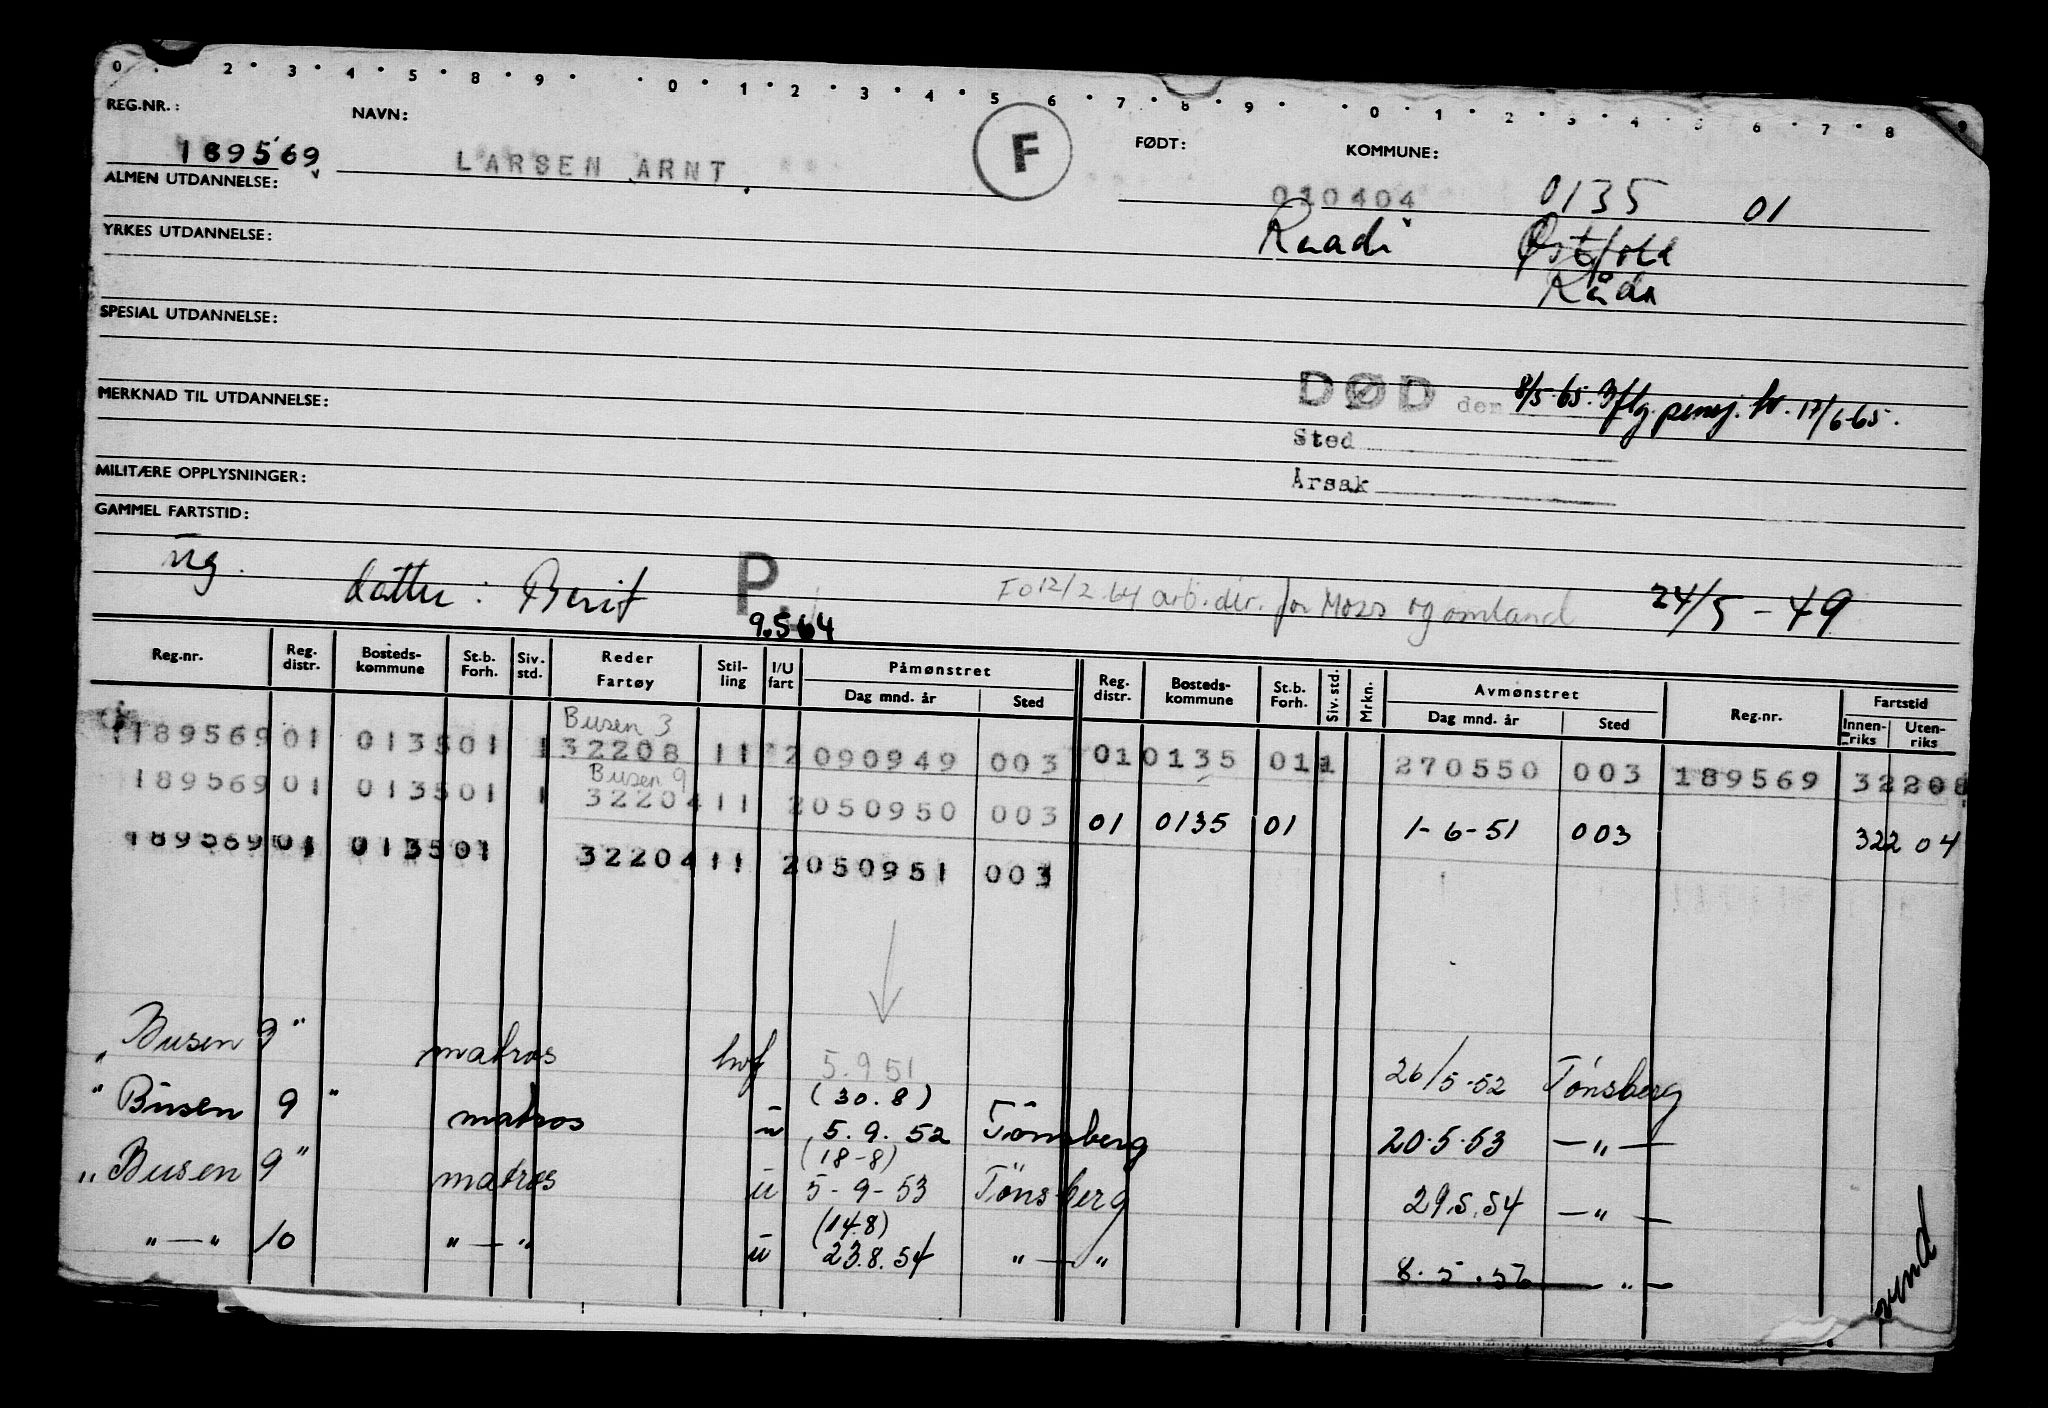 0 . 2 . 3 . 4 . 5 . 8 . 9 . . 0 . 1 . 2 . 3 . 4 . 5 . 6 . 7 . 8 . 9 . . 0 . 1 . 2 . 3 . 4 . 5 . 6 . 7 . 8 . 9
REG.NR.: NAVN: F FØDT: KOMMUNE:
189569 LARSEN ARNT 010404 0135 01
ALMEN UTDANNELSE: Østfold
YRKES UTDANNELSE: Råde
SPESIAL UTDANNELSE:
DØD den 8/5-65. 17/6-65.
MERKNAD TIL UTDANNELSE:
Sted
MILITÆRE OPPLYSNINGER: Årsak
GAMMEL FARTSTID:
ug. datter: Berit P. Fo 12/2.64 arb.dir. for Moss og omland 24/5-49
9.5 64
Reg.nr. Reg. distr. Bosteds-kommune St.b. Forh. Siv. std. Reder Fartøy Stil-ling I/U fart Påmønstret Dag mnd. år Sted Reg. distr. Bosteds-kommune St.b. Forh. Siv. std. Mrkn. Avmønstret Dag mnd. år Sted Reg.nr. Fartstid Innen-riks Uten-riks
Busen 3
189569 01 0135 01 1 32208 11 2 090949 003 01 0135 01 1 270550 003 189569 32208
Busen 9
189569 01 0135 01 1 32204 11 2 050950 003 01 0135 01 1-6-51 003 32204
189569 01 0135 01 32204 11 2 050951 003
"Busen 9" matros hvf 5.9 51 26/5-52 Tönsberg
(30.8)
"Busen 9" matros u 5.9.52 Tönsberg 20.5.53 —"—
(18-8)
"Busen 9" matros u 5-9-53 Tönsberg 29.5.54 —"—
(14.8)
"—" 10 "—" u 23.8.54 "—" 8.5.56 —"—